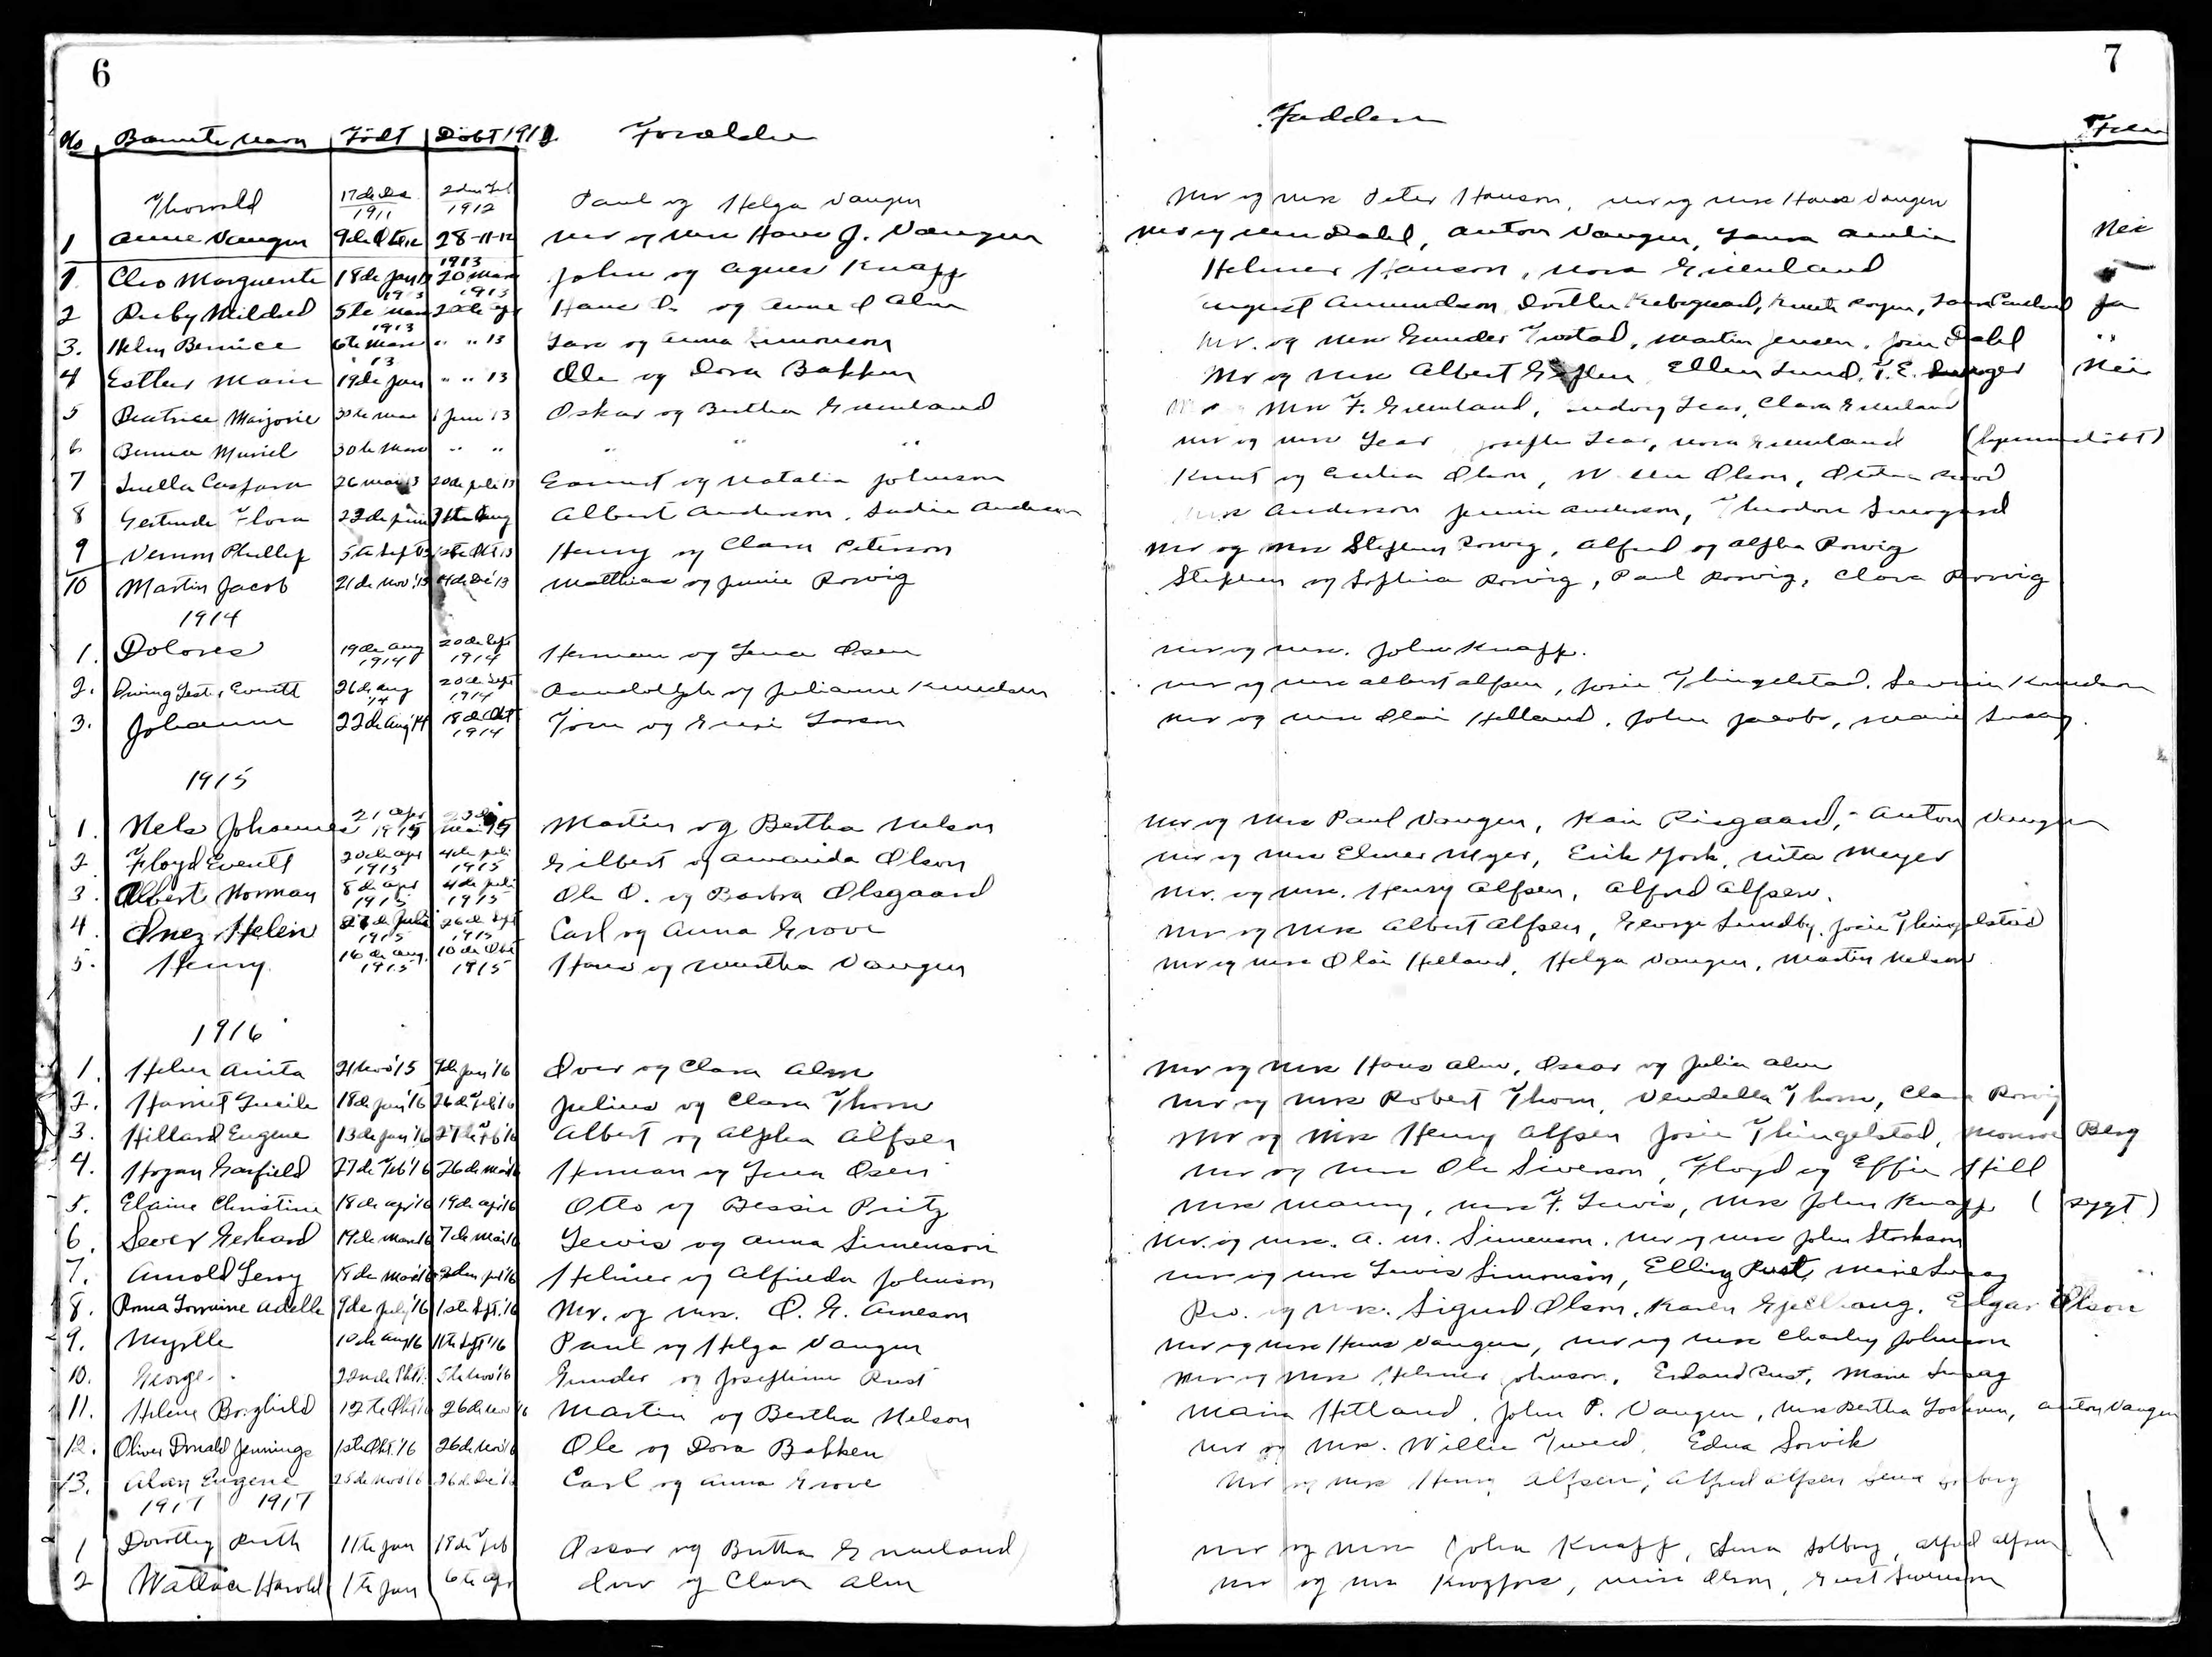 6
7
No Barnets Navn Födt Döbt 1912 Forældre Faddere
Thorvald 17de Dec 1911 2den Feb 1912 Paul og Helga Vangen Mr og Mrs Peter Hanson, Mr og Mrs Hans Vangen
1 Anne Vangen 9de 28-11-12 Mr og Mrs Hans J. Vangen Mr og Mrs Dahl, Anton Vangen, Laura Nei
1913
1 Cleo Marguerite 18de Jan 13 20 Mars 1913 John og Agnes Knapp Helmer Hanson, Nora Greenland
2 Ruby Mildred 5te Mars 1913 20de Apr Hans O. og Anne Alm August Amundson, Knute Ja
3. Helen Bernice 6te Mars 1913 " " 13 Lars og Anna Simonson Mr. og Mrs Gunder Tvestad, Martin Jensen, Josie Dahl "
4 Esther Marie 19de Jan 13 " " 13 Ole og Dora Bakken Mr og Mrs Albert Ellen Lund, T. E. Nei
5 Beatrice Marjorie 30te Mars 1 Juni 13 Oskar og Bertha Greenland Mrs F. Greenland, Clara Greenland
6 Muriel 30te Mars " " " " " Mr og Mrs Lear, Josephe Lear, Nora Greenland (hjemmedöbt)
7 Luella 26 Mai 13 20de Juli 13 og Natalia Johnson Knut og Olson, Olson,
8 Gertrude Flora 23de Juni Aug Albert Anderson, Sadie Anderson Anderson Jennie Anderson, Theodore
9 Vernon Phillip 5te Sept 13 Okt 13 Henry og Clara Peterson Mr og Mrs Stephen Rovig, Alfred og Alpha Rovig
10 Martin Jacob 21de Nov '13 Dec '13 Matthias og Jennie Rovig Stephen og Sophia Rovig, Paul Rovig, Clara Rovig
1914
1. Dolores 19de Aug 1914 20de Sept 1914 Herman og Lena Osen Mr og Mrs. John Knapp.
2. Everett 26de Aug '14 20de Sept 1914 Randolph og Julianne Knudson Mr og Mrs Albert Alfsen, Josie Thingelstad, Knudson
3. Johann 22de Aug '14 18de Okt 1914 Larson Mr og Mrs Olai Helland, John Jacobs, Marie
1915
1. Nels Johannes 21 Apr 1915 Mai 15 Martin og Bertha Nelson Mr og Mrs Paul Vangen, Kari Risgaard, Anton Vangen
2 Floyd Everett 20de Apr 1915 4de Juli 1915 Gilbert og Amanda Olson Mr og Mrs Elmer Myer, Erik York, Nita Meyer
3. Albert Norman 8de Apr 1915 4de Juli 1915 Ole O. og Barbra Olsgaard Mr. og Mrs. Henry Alfsen, Alfred Alfsen.
4. Inez Helen Juli 1915 26de Sept 1915 Carl og Anna Grove Mr og Mrs Albert Alfsen, George Lundby, Josie Thingelstad
5. Henry 16de Aug. 1915 10de Okt 1915 Hans og Martha Vangen Mr og Mrs Olai Helland, Helga Vangen, Martin Nelson
1916
1. Helen Anita 21 Nov '15 9de Jan '16 Iver og Clara Alm Mr og Mrs Hans Alm, Oscar og Julia Alm
2. Harriet Lucile 18de Jan '16 26de Feb '16 Julius og Clara Thom Mr og Mrs Robert Thom, Vendella Thom, Clara Rovig
3. Hillard Eugene 13de Jan '16 27de Feb '16 Albert og Alpha Alfsen Mr og Mrs Henry Alfsen Josie Thingelstad, Monroe Berg
4. Hogan Garfield 27de Feb '16 26de Mars 16 Herman og Lena Osen Mr og Mrs Ole Siverson, Floyd og Effie Hill
5. Elaine Christine 18de Apr '16 19de Apr '16 Otto og Bessie Pritz Mrs Manny, Mrs F. Lewis, Mrs John Knapp (sygt)
6. Sever Gerhard 19de Mars 16 7de Mai 16 Lewis og Anna Simenson Mr. og Mrs. A. M. Simenson, Mr og Mrs John Storkson
7. Arnold Leroy 18de Mai '16 2den Juli '16 Helmer og Alfrieda Johnson Mr og Mrs Lewis Simonson, Elling Rust, Marie
8. Anna Lorraine Adelle 9de July '16 1ste Sept. '16 Mr. og Mrs. O. G. Arneson Rev. og Mrs. Sigurd Olson, Karen Edgar Olson
9. Myrtle 10de Aug 16 11te Sept '16 Paul og Helga Vangen Mr og Mrs Hans Vangen, Mr og Mrs Charley Johnson
10. George 22nde Okt. 5te Nov '16 Gunder og Josephine Rust Mr og Mrs Helmer Johnson, Erland Rust, Marie
11. Helene Borghild 12te Okt '16 26de Nov '16 Martin og Bertha Nelson Maria Hetland, John P. Vangen, Mrs Bertha Anton Vangen
12. Oliver Donald Jennings 1ste Okt. '16 26de Nov 16 Ole og Dora Bakken Mr og Mrs. Willie Tweed, Edna Sorvik
13. Alan Eugene 25de Nov '16 26de Dec '16 Carl og Anna Grove Mr og Mrs Henry Alfsen, Alfred Alfsen Lena
1917 1917
1 Dorothy Ruth 11te Jan 18de Feb Oscar og Bertha Greenland Mr og Mrs John Knapp, Lena Solberg, Alfred Alfsen
2 Wallace Harold 1te Jan 6te Apr Iver og Clara Alm Mr og Mrs Krogfoss, Olson,